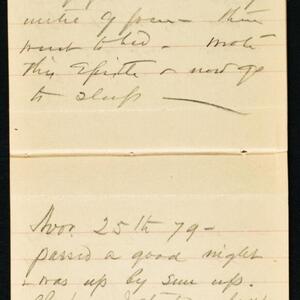 then
went to bed - wrote
this Epistle & now go
to sleep
Nov. 25th 79-
passed a good night
& was up by sun up.